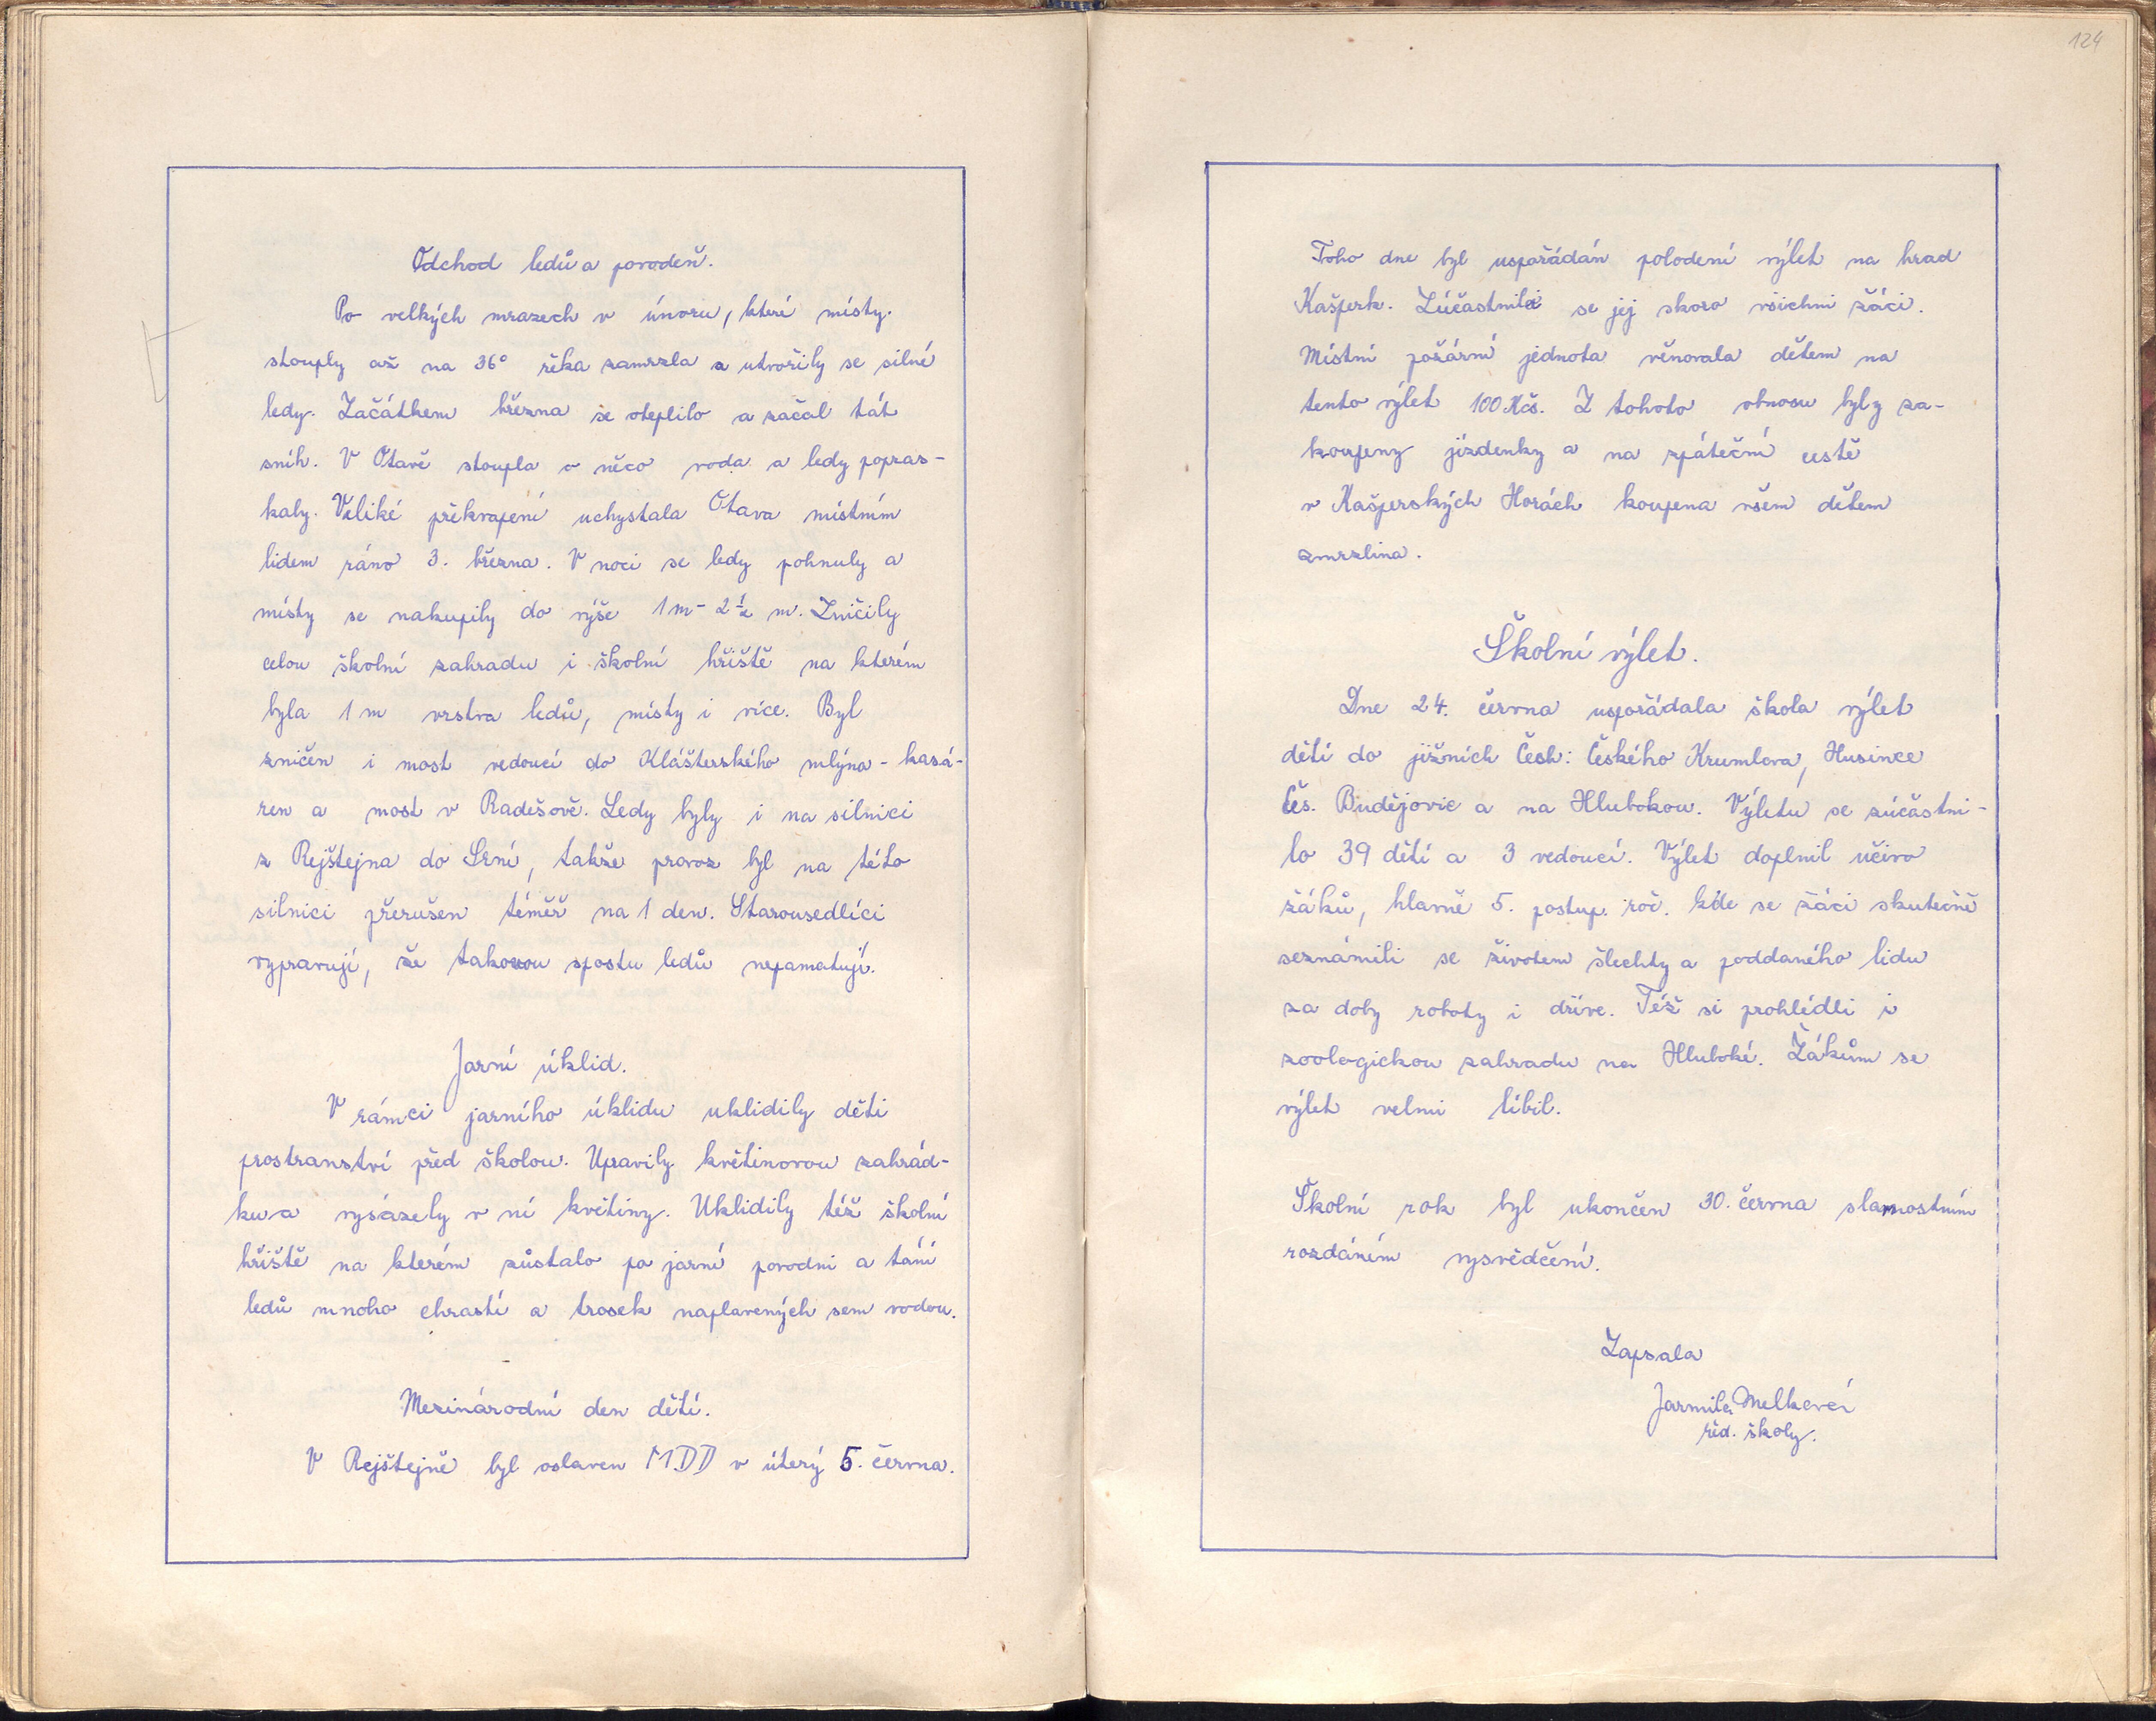 Odchod ledů a povodeň.
Po velkých mrazech v únoru, které místy
stouply až na 36° řeka zamrzla a utvořily se silné
ledy. Začátkem března se oteplilo a začal tát
sníh. V Otavě stoupla o něco voda a ledy popras-
kaly. Veliké překvapení uchystala Otava místním
lidem ráno 3. března. V noci se ledy pohnuly a
místy se nakupily do výše 1m - 2 ½ m. Zničily
celou školní zahradu i školní hřiště na kterém
byla 1 m vrstva ledů, místy i více. Byl
zničen i most vedoucí do Klášterského mlýna - kasá-
ren a most v Radešově. Ledy byly i na silnici
z Rejštejna do Srní, takže provoz byl na této
silnici přerušen téměř na 1 den. Starousedlíci
vypravují, že takovou spostu ledů nepamatují.
Jarní úklid.
V rámci jarního úklidu uklidily děti
prostranství před školou. Upravily květinovou zahrád-
ku a vysázely v ní květiny. Uklidily též školní
hřiště na kterém zůstalo po jarní povodni a tání
ledů mnoho chrastí a trosek naplavených sem vodou.
Mezinárodní den dětí.
V Rejštejně byl oslaven MDD v úterý 5. června.
124
Toho dne byl uspořádán polodení výlet na hrad
Kašperk. Zúčastnili se jej skoro všichni žáci.
Místní požární jednota věnovala dětem na
tento výlet 100 Kčs. Z tohoto obnosu byly za-
koupeny jízdenky a na zpáteční cestě
v Kašperských Horách koupena všem dětem
zmrzlina.
Školní výlet.
Dne 24. června uspořádala škola výlet
dětí do jižních Čech: Českého Krumlova, Husince
Čes. Budějovic a na Hlubokou. Výletu se zúčastni-
lo 39 dětí a 3 vedoucí. Výlet doplnil učivo
žáků, hlavně 5. postup. roč. kde se žáci skutečně
seznámili se životem šlechty a poddaného lidu
za doby roboty i dříve. Též si prohlédli i
zoologickou zahradu na Hluboké. Žákům se
výlet velmi líbil.
Školní rok byl ukončen 30. června slavnostním
rozdáním vysvědčení.
Zapsala
Jarmila Melková
řed. školy.